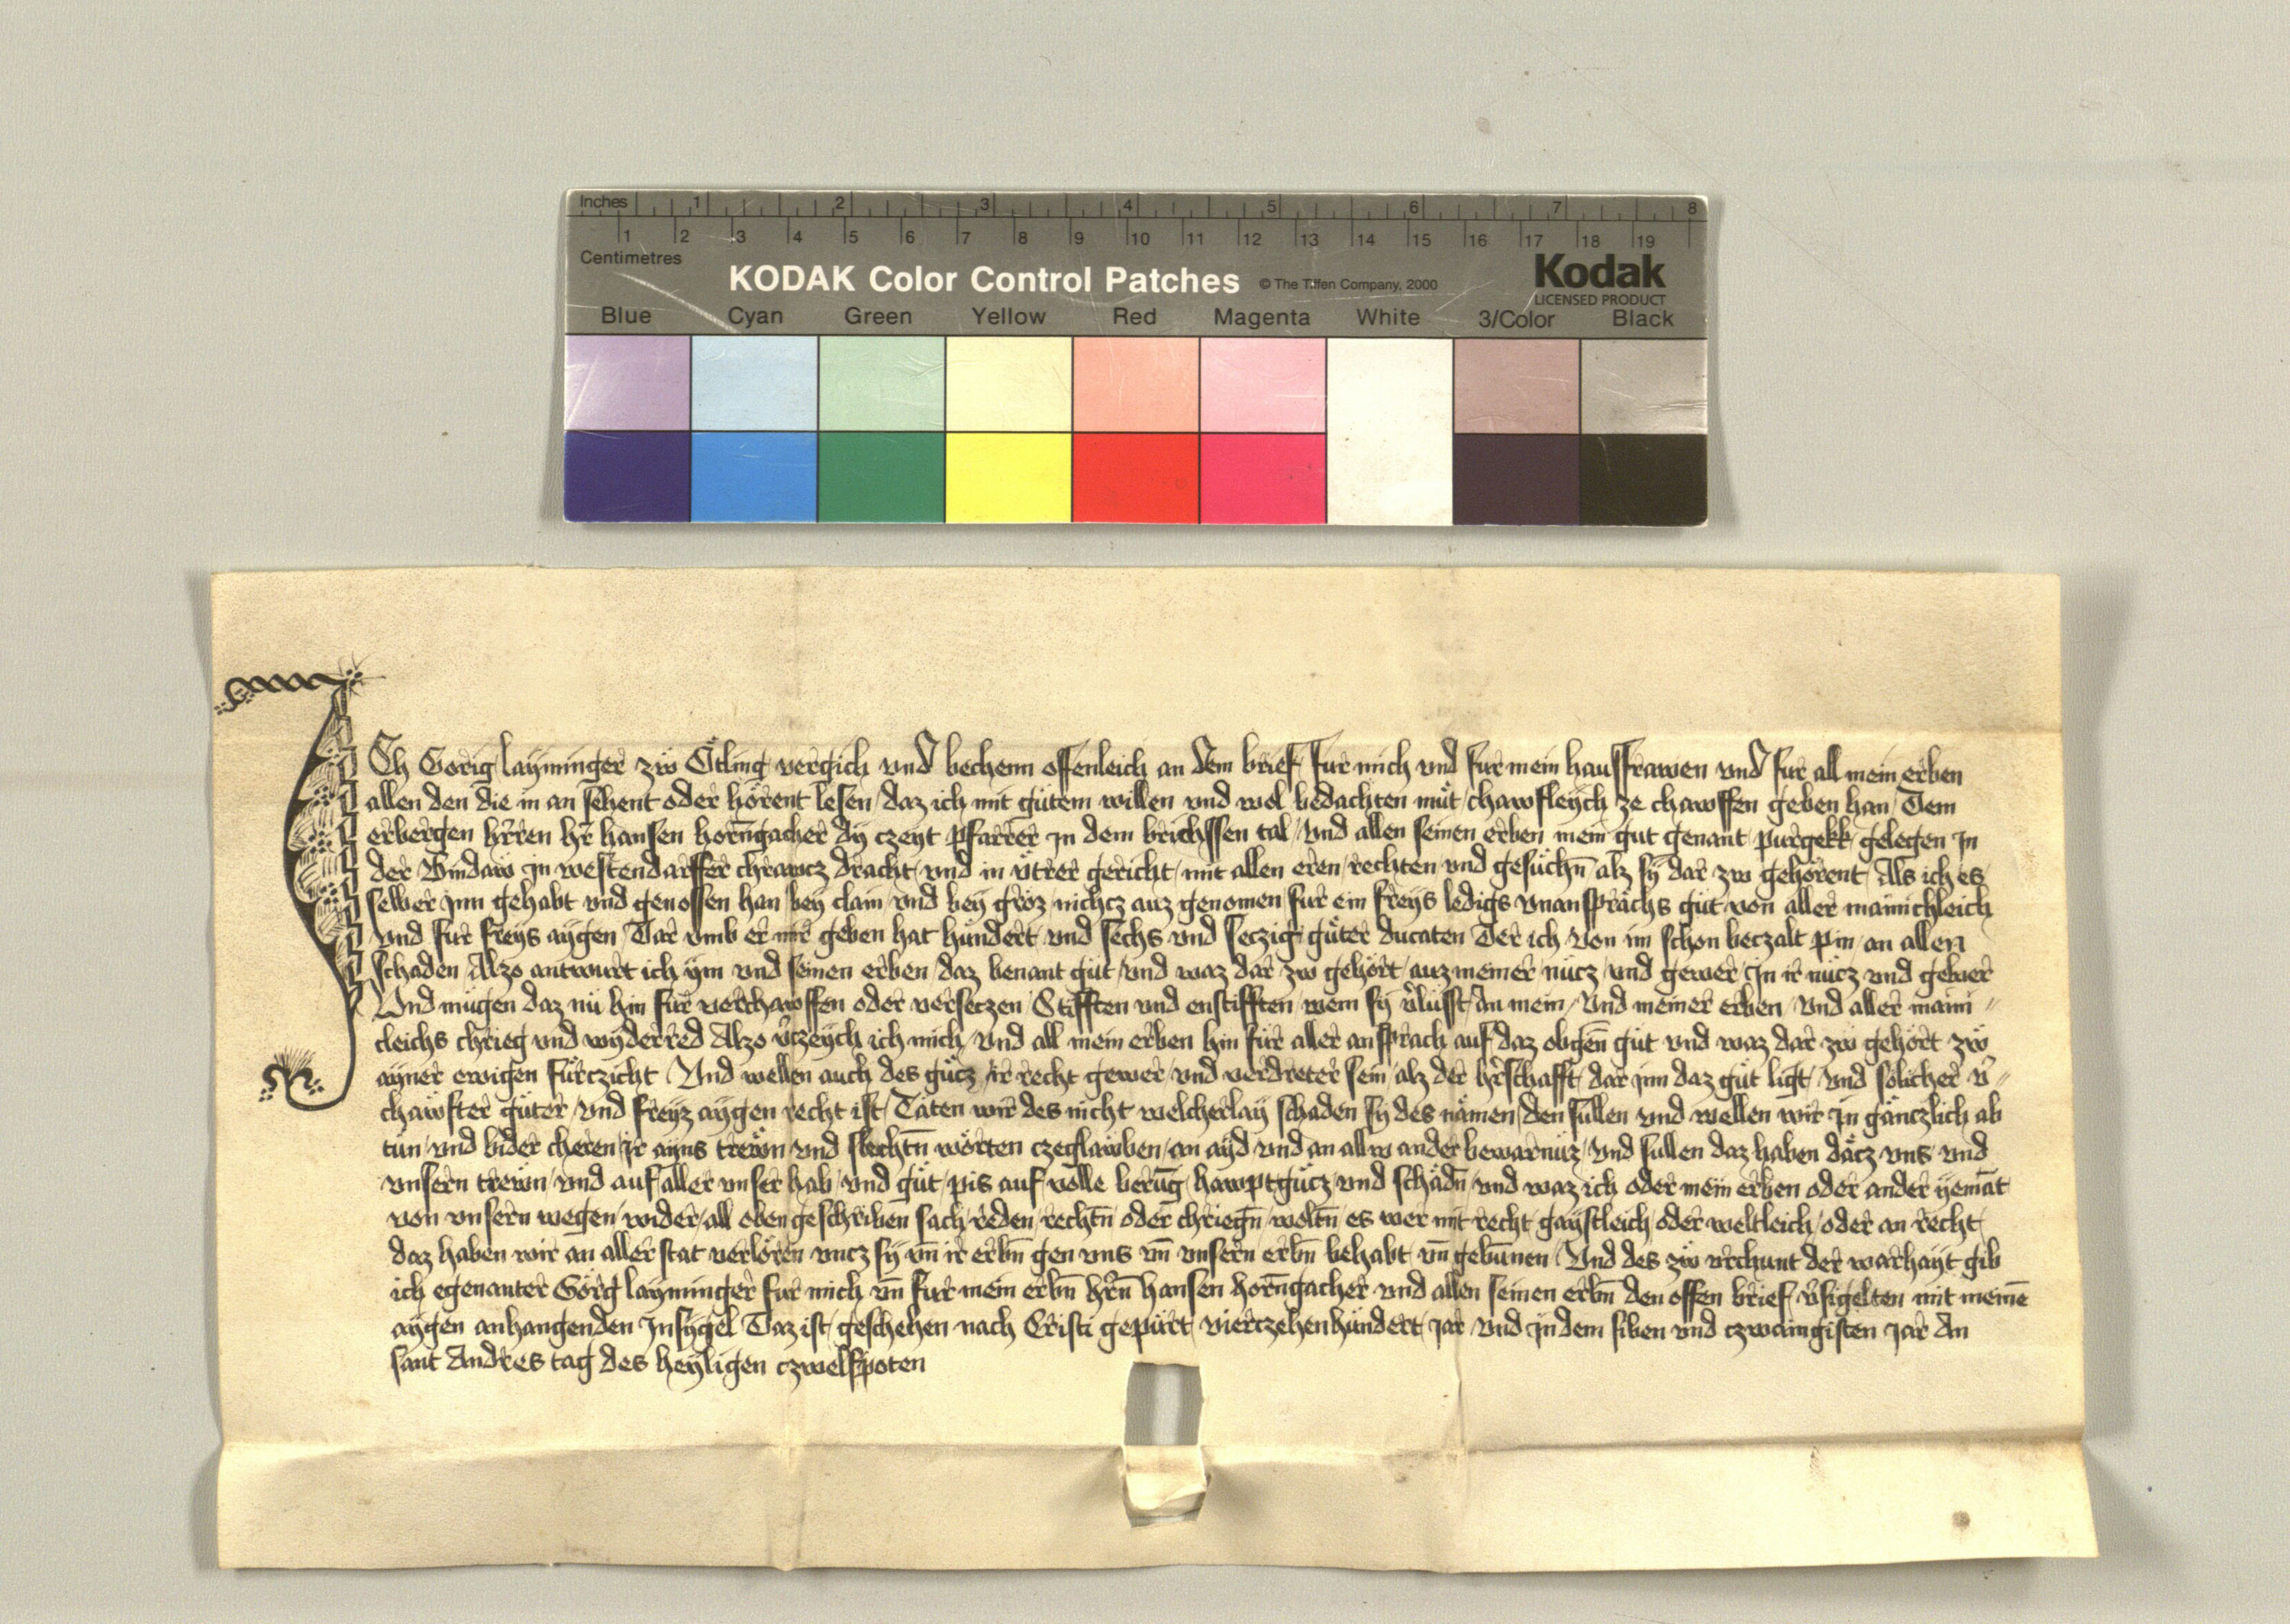 Inches 1 2 3 4 5 6 7 8
1 2 3 4 5 6 7 8 9 10 11 12 13 14 15 16 17 18 19
Centimetres
KODAK Color Control Patches © The Tiffen Company, 2000 Kodak
LICENSED PRODUCT
Blue Cyan Green Yellow Red Magenta White 3/Color Black
ICh Gorig layminger zw Ötling vergich vnd bechenn offenleich an dem brief fur mich vnd fur mein hausfrawen vnd fur all mein erben
allen den die in an sehent oder hörent lesen daz ich mit gutem willen vnd wol bedachten müt chawfleych ze chawffen geben han Dem
erbergen hr̄ren hr̄ hansen horn̄gacher dy czeyt pfarrer In dem brichssen tal vnd allen seinen erben mein gut genant purgekk gelegen In
der Vindaw In westendarffer chrawcz dracht vnd in ẏtrer gericht mit allen eren rechten vnd gesüchn̄ alz sy dar zw gehörent Als ich es
selber Inn gehabt vnd genossen han bey clain vnd bey gröz nichcz auz genomen fur ein freys ledigs vnansprächs güt von aller mainichleich
vnd fur freys aygen Dar vmb er mir geben hat hundert vnd sechs vnd seczig güter ducaten Der ich von im schon beczalt pin an allen
schaden Alzo antwurt ich ym vnd seinen erben daz benant güt vnd waz dar zw gehört auz meiner nücz vnd gewer In ir nücz vnd gewer
Vnd mügen daz nü hin für verchawffen oder verseczen Stifften vnd enstifften wem sy v̄lusst An mein vnd meiner erben vnd aller maini
cleichs chrieg vnd wyderred Alzo v̄czeych ich mich vnd all mein erben hin für aller ansprach auf daz obgen̄ güt vnd waz dar zw gehört zw
ayner ewigen fürczicht Vnd wellen auch des gücz ir recht gewer vnd verdreter sein alz der hr̄schafft dar Inn daz güt ligt vnd solicher v̄
chawfter güter vnd freyz aygen recht ist Täten wir des nicht welcherlay schaden sy des nämen den sullen vnd wellen wir In gänczlich ab
tün vnd bider cheren ir ayns trewn vnd slechtn̄ worten czeglawben an ayd vnd an allw ander bewarnüz vnd sullen daz haben däcz vns vnd
vnsern trewn vnd auf aller vnser hab vnd güt pis auf volle berūg hawptgücz vnd schädn̄ vnd waz ich oder mein erben oder ander yemāt
von vnsern wegen wider all oben geschriben sach reden rechtn̄ oder chriegn̄ woltn̄ es wer mit recht gaystleich oder weltleich oder an recht
daz haben wir an aller stat verloren vncz sy vn̄ ir erbn̄ gen vns vn̄ vnsern erbn̄ behabt vn̄ gebūnen Vnd des zw vrchunt der warhayt gib
ich egenanter Görg layminger fur mich vn̄ fur mein erbn̄ hr̄n̄ hansen horn̄gacher vnd allen seinen erbn̄ den offen brief v̄sigelten mit meinē
aygen anhangenden Insygel Daz ist geschehen nach Cristi gepürt vierczehenhundert Jar vnd In dem siben vnd czwaingisten Jar An
sant Andres tag des heyligen czwelfpoten